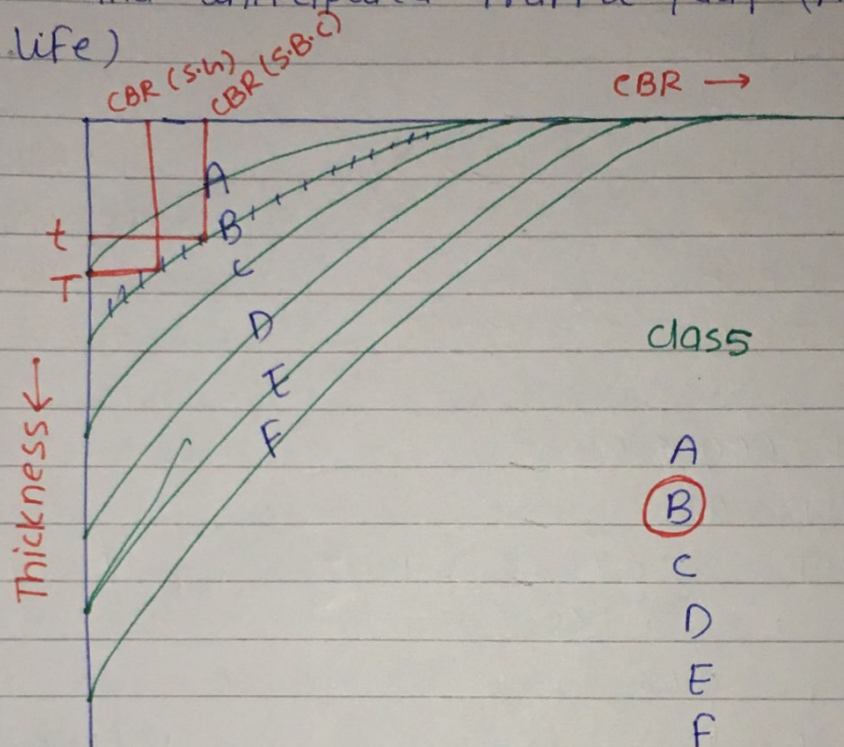 life)
CBR (S.G)
CBR (S.B.C)
CBR →
t
T
A
B
C
D
E
F
Thickness ←
class
A
B
C
D
E
F